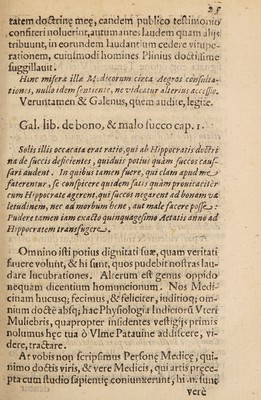 25
tatem doctrinę meę, eandem publico testimonio
confiteri noluerint, autum antes laudem quam alijs
tribuunt, in eorundem laudantium cedere vitupe-
rationem, cuiusmodi homines Plinius doctissime
suggillauit.
Hinc miseræ illæ Medicorum circa Aegros consulta-
tiones, nullo idem sentiente, ne videatur alterius accessio.
Veruntamen & Galenus, quem audite, legite.
Gal. lib. de bono, & malo succo cap. 1.
Solis illis occæcata erat ratio, qui ab Hippocratis doctri
na de succis deficientes, quiduis potius quàm succos caus-
sari audent. In quibus tamen fuere, qui clam apud me
faterentur, se conspicere quidem satis quàm prouicaciter
cum Hippocrate agerent, qui succos negarent ad bonam va
letudinem, nec ad morbum bene, aut male facere posse
Pudere tamen iam exacto quinquagesimo Aetatis anno ad
Hippocratem transfugere.
Omnino isti potius dignitati suæ, quam veritati
fauere volunt, & hi sunt, quos pudebit nostras lau-
dare lucubrationes. Alterum est genus oppido
nequam dicentium homuncionum. Nos Medi-
cinam hucusq; fecimus, & feliciter, inditioq; om-
nium doctè absq; hac Physiologia Indiciorũ Vteri
Muliebris, quapropter insidentes vestigijs primis
nolumus hęc tua ò Vlme Patauine addiscere, vi-
dere, tractare.
At vobis non scripsimus Personę Medicę, qui-
nimo doctis viris, & vere Medicis, qui artis pręce-
pta cum studio sapientię coniunxerunt, hi .n. sunt
verè